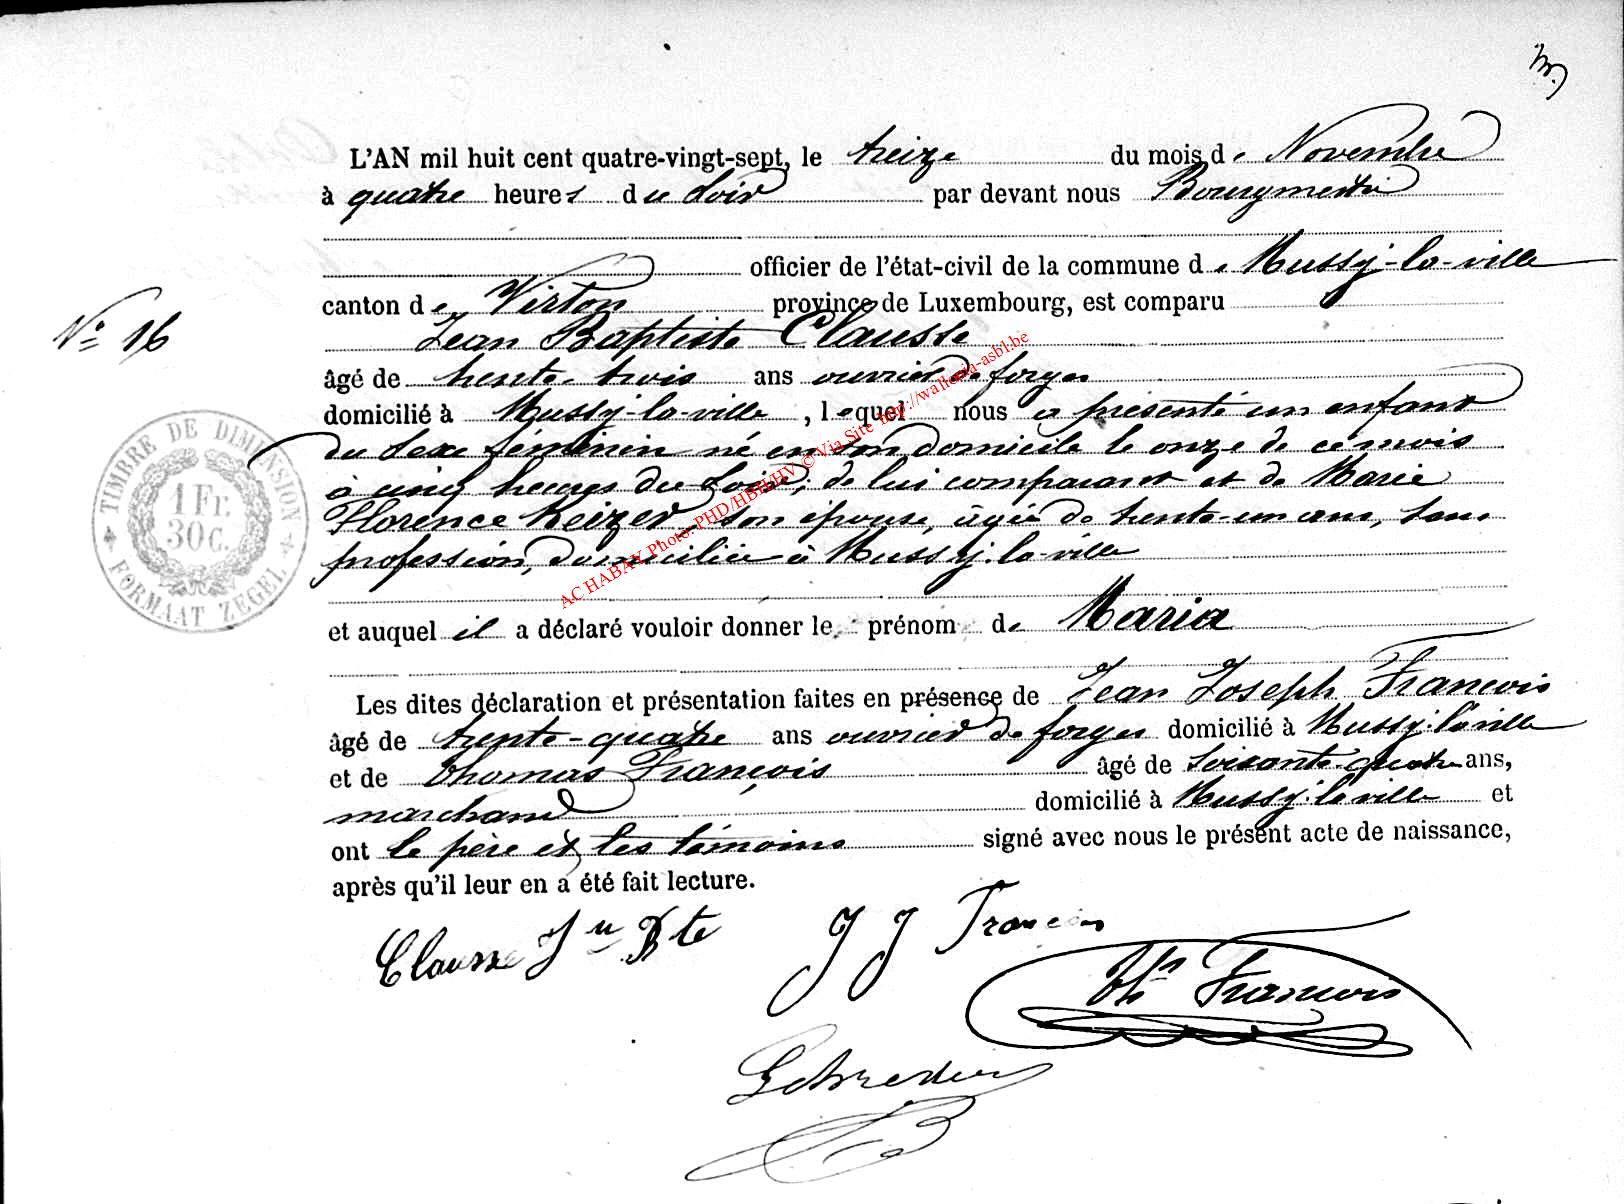 L'AN mil huit cent quatre-vingt-sept, le treize du mois de Novembre
à quatre heures du soir par devant nous Bourgmestre
officier de l'état-civil de la commune de Mussy-la-ville
canton de Virton province de Luxembourg, est comparu
N° 16
Jean Baptiste Clausse
âgé de trente-trois ans ouvrier de forges
domicilié à Mussy-la-ville, lequel nous a présenté un enfant
du sexe féminin né en son domicile le onze de ce mois
à cinq heures du soir, de lui comparant et de Marie
Florence Keizer, son épouse, âgée de trente-un ans, sans
profession, domiciliée à Mussy-la-ville
et auquel il a déclaré vouloir donner le prénom de Maria
Les dites déclaration et présentation faites en présence de Jean Joseph François
âgé de trente-quatre ans ouvrier de forges domicilié à Mussy-la-ville
et de Thomas François âgé de soixante-quatre ans,
marchand domicilié à Mussy-la-ville et
ont le père et les témoins signé avec nous le présent acte de naissance,
après qu'il leur en a été fait lecture.
Clausse Jn Bte J J Francois
Th Francois
TIMBRE DE DIMENSION
1 Fr.
30 C.
FORMAAT ZEGEL
AC HABAY Photo: PHD/HBH/HV © Via Site http://wallonia-asbl.be